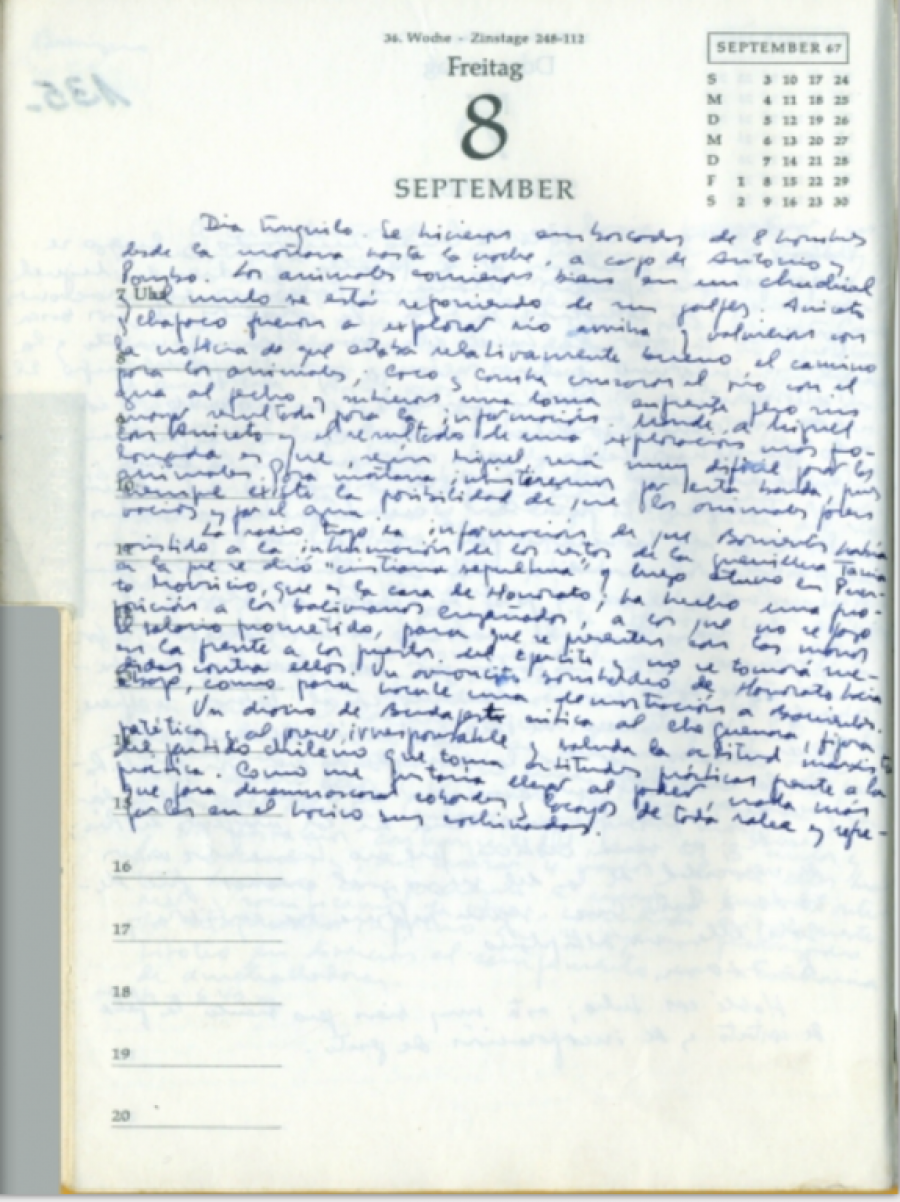 36. Woche – Zinstage 248-112
Freitag
8
SEPTEMBER
SEPTEMBER 67
S 3 10 17 24
M 4 11 18 25
D 5 12 19 26
M 6 13 20 27
D 7 14 21 28
F 1 8 15 22 29
S 2 9 16 23 30
135-
Día tranquilo. Se hicieron emboscadas de 8 hombres
desde la mañana hasta la noche, a cargo de Antonio y
Pombo. Los animales comieron bien en un chuchial
7 Uhr
y el mulo se está reponiendo de sus golpes. Aniceto
y Chapaco fueron a explorar río arriba y volvieron con
la noticia de que estaba relativamente bueno el camino
para los animales, Coco y Camba cruzaron el río con el
agua al pecho y subieron una loma enfrente pero sin
mayor resultado para la información. Mandé a Miguel
con Aniceto y el resultado de una exploración más pro-
longada es que, según Miguel, será muy difícil pasar los
animales. Para mañana insistiremos por esta banda, pues
siempre existe la posibilidad de que los animales pasen
vacíos y por el agua
La radio trajo la información de que Barrientos había
asistido a la inhumación de los restos de la guerrillera Tania
a la que se dió "cristiana sepultura" y luego estuvo en Puer-
to Mauricio, que es la casa de Honorato; ha hecho una pro-
posición a los bolivianos engañados, a los que no se pagó
el salario prometido, para que se presenten con las manos
en la frente a los puestos del ejército y no se tomará me-
didas contra ellos. Un avioncito bombardeó de Honorato hacia
abajo, como para hacerle una demostración a Barrientos.
Un diario de Budapest critica al Che Guevara, figura
patética y al parecer irresponsable y saluda la actitud marxista
del partido chileno que toma actitudes prácticas frente a la
práctica. Como me gustaría llegar al poder, nada más
que para desenmascarar cobardes y lacayos de toda ralea y refre-
garles en el hocico sus cochinadas.
16
17
18
19
20